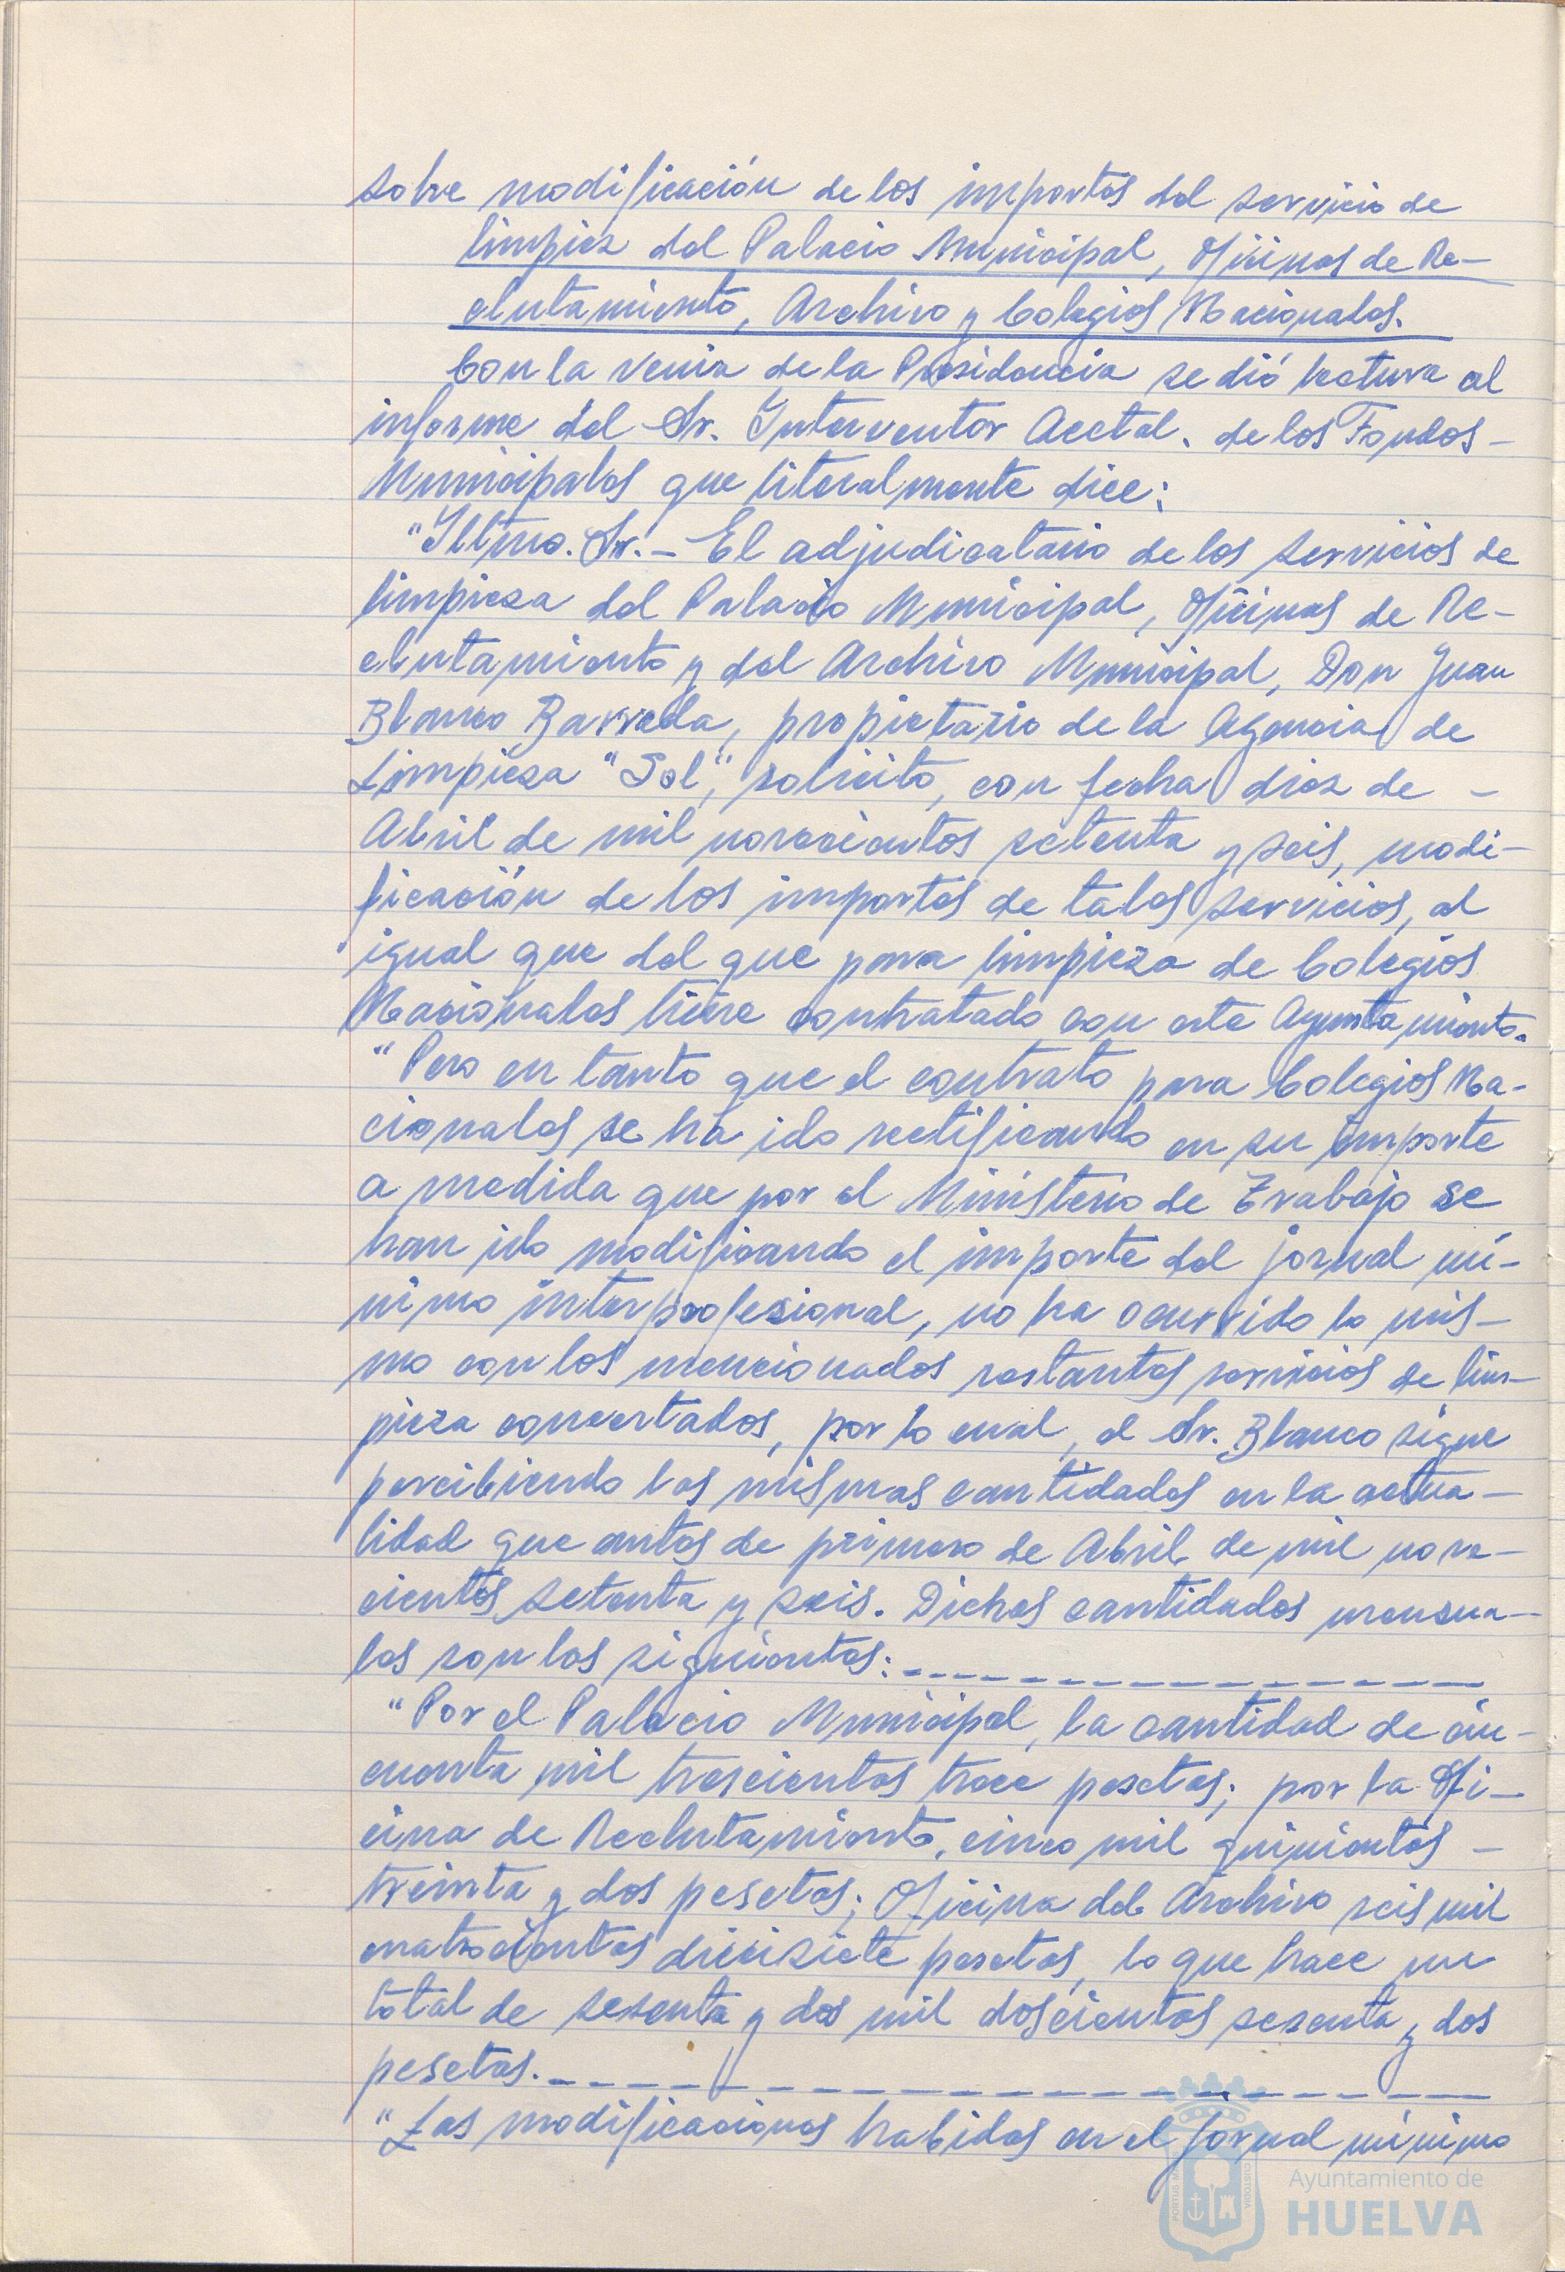 sobre modificación de los importes del servicio de
limpieza del Palacio Municipal, Oficinas de Re-
clutamiento, Archivo y Colegios Nacionales.
Con la venia de la Presidencia se dió lectura al
informe del Sr. Interventor Acctal. de los Fondos -
Municipales que literalmente dice:
"Illmo. Sr. - El adjudicatario de los servicios de
limpieza del Palacio Municipal, Oficinas de Re-
clutamiento y del Archivo Municipal, Don Juan
Blanco Barreda, propietario de la Agencia de
Limpieza "Sol", solicito, con fecha diez de -
Abril de mil novecientos setenta y seis, modi-
ficación de los importes de tales servicios, al
igual que del que para limpieza de Colegios
Nacionales tiene contratado con este Ayuntamiento.
"Pero en tanto que el contrato para Colegios Na-
cionales se ha ido rectificando en su importe
a medida que por el Ministerio de Trabajo se
han ido modificando el importe del jornal mí-
nimo interprofesional, no ha ocurrido lo mis-
mo con los mencionados restantes servicios de lim-
pieza concertados, por lo cual, el Sr. Blanco sigue
percibiendo las mismas cantidades en la actua-
lidad que antes de primero de Abril de mil nove-
cientos setenta y seis. Dichas cantidades mensua-
les son las siguientes: - - - - - - - - - - - - - - - -
"Por el Palacio Municipal, la cantidad de cin-
cuenta mil trescientas trece pesetas; por la Ofi-
cina de Reclutamiento, cinco mil quinientas -
treinta y dos pesetas; Oficina del Archivo seis mil
cuatrocientas diecisiete pesetas, lo que hace un
total de sesenta y dos mil doscientas sesenta y dos
pesetas. - - - - - - - - - - - - - - - - - - - - - -
"Las modificaciones habidas en el jornal mínimo
Ayuntamiento de
HUELVA